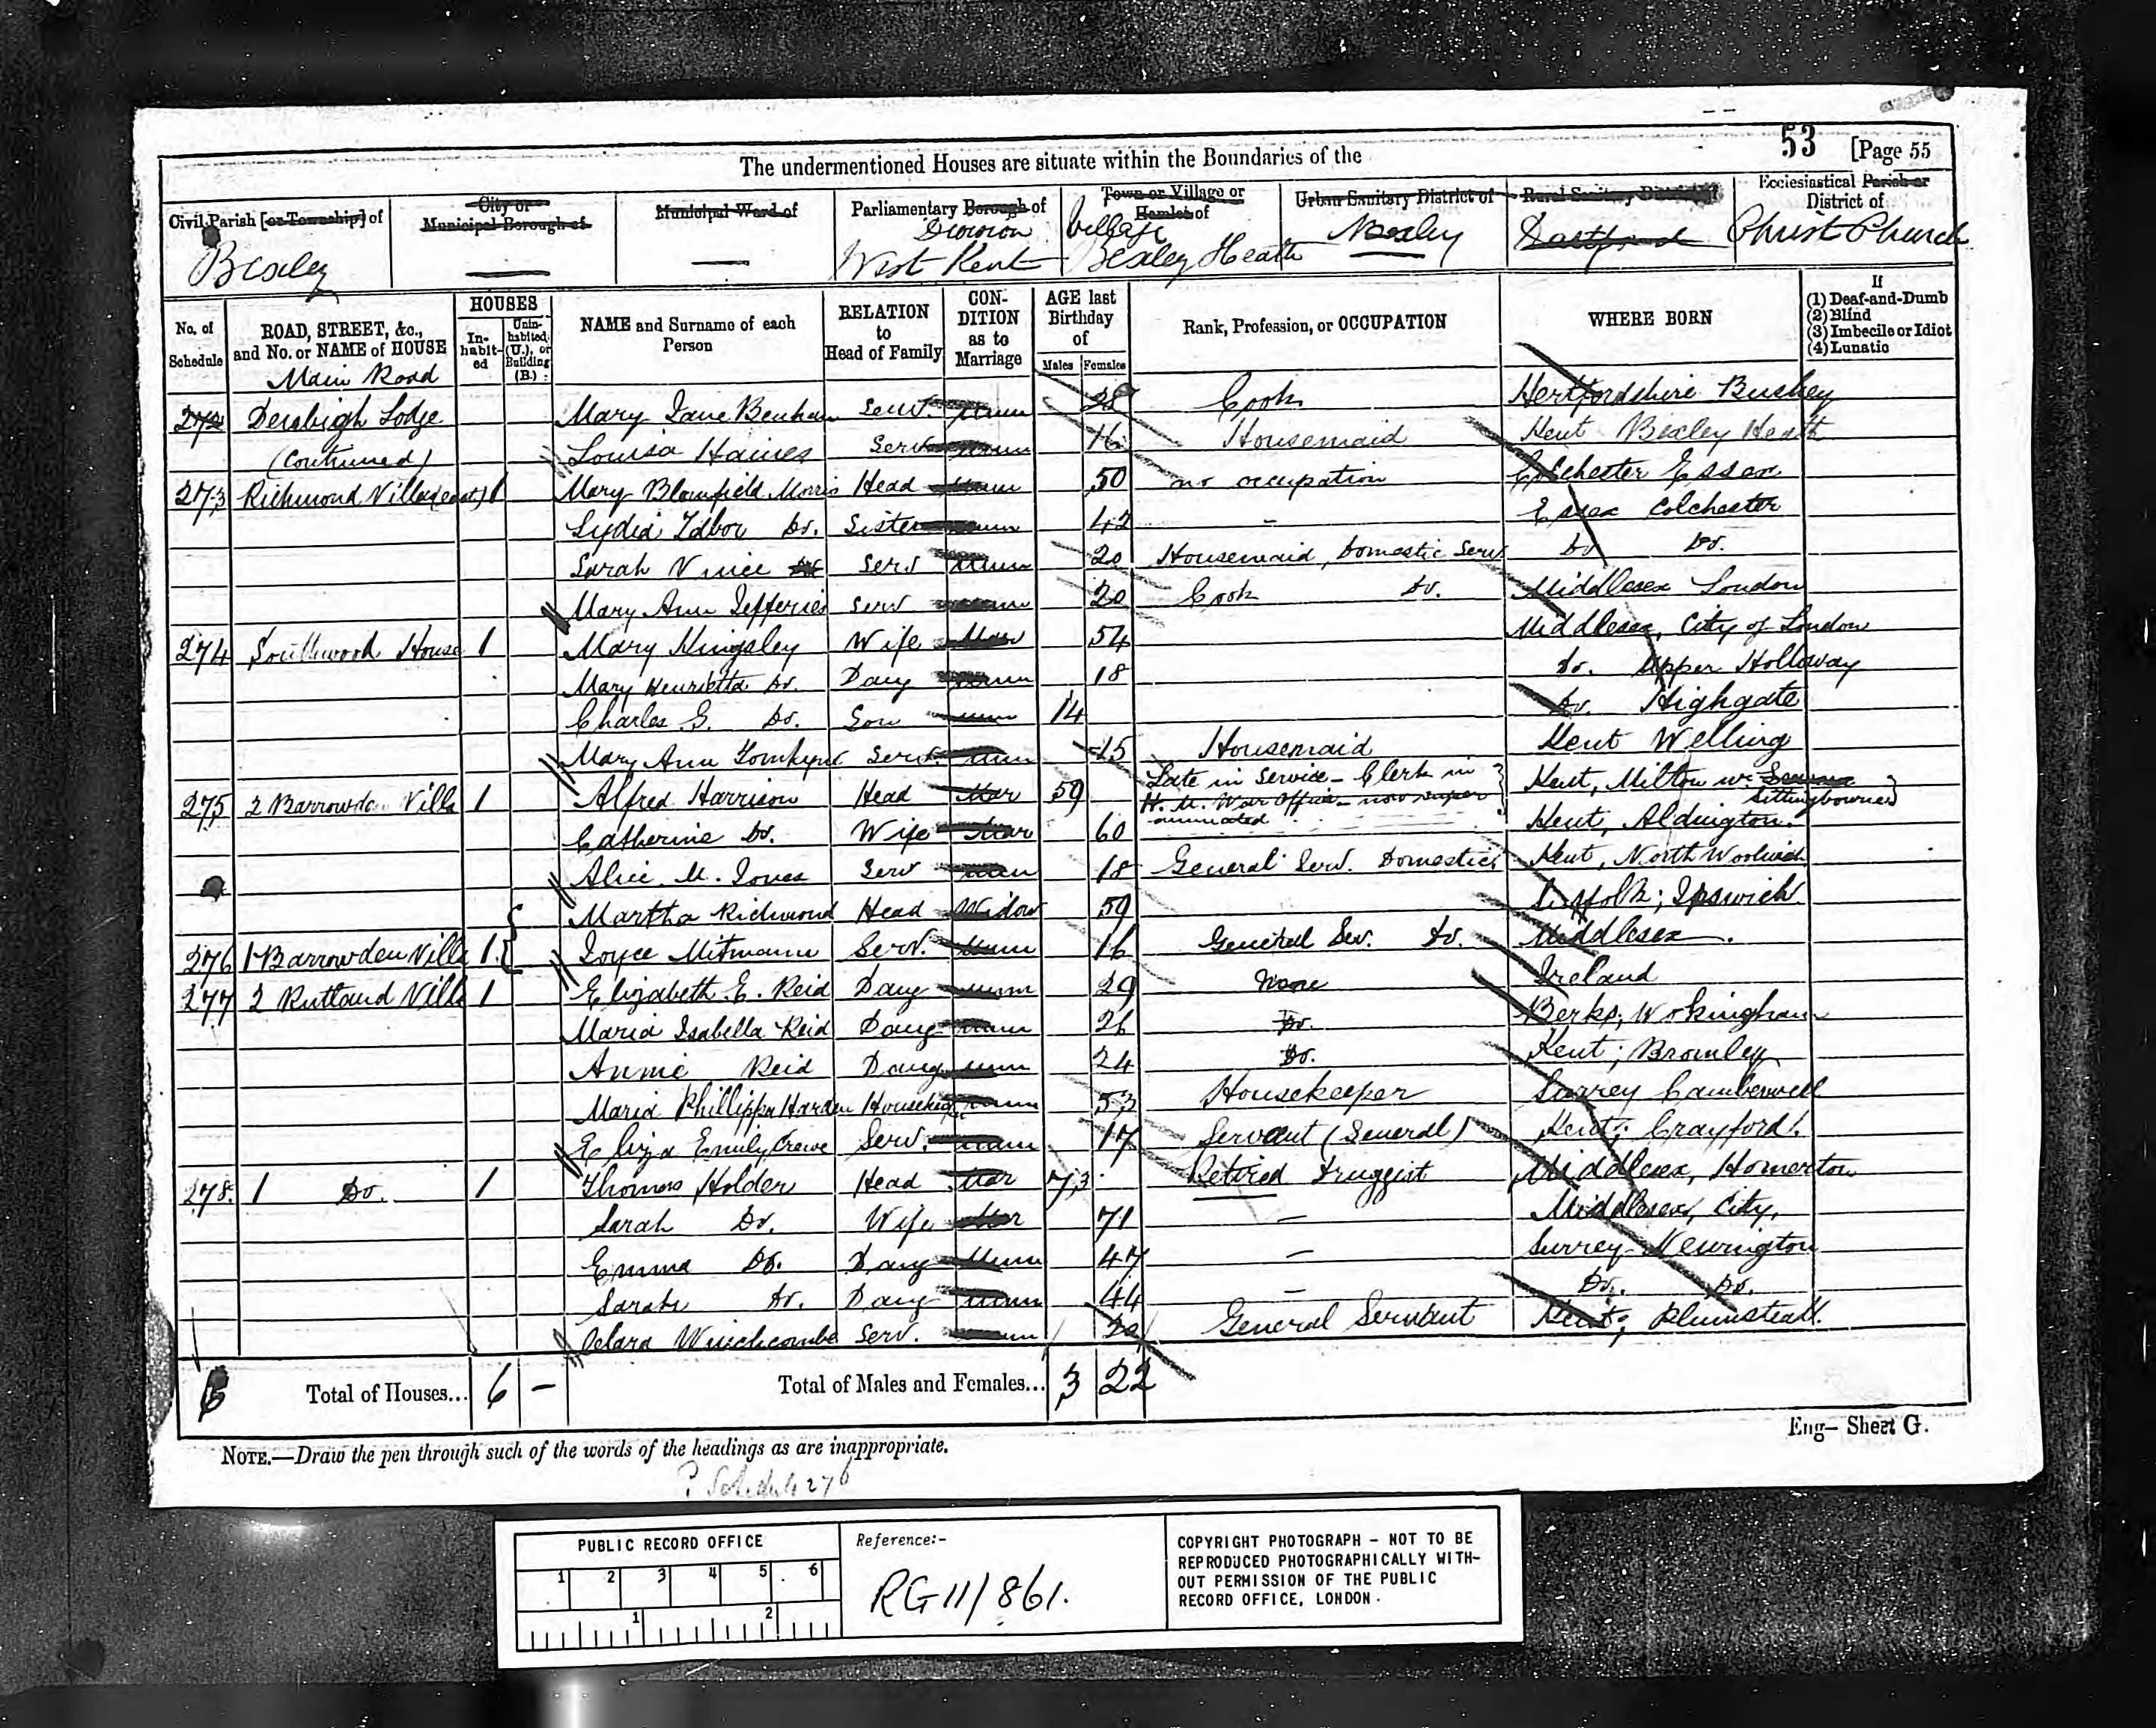 53 [Page 55
The undermentioned Houses are situate within the Boundaries of the
Civil Parish [or Township] of
City or Municipal Borough of
Municipal Ward of
Parliamentary Borough of
Division
Town or Village or Hamlet of
Village
Urban Sanitary District of
Rural Sanitary District of
Ecclesiastical Parish or District of
Bexley — — West Kent Bexley Heath Bexley Dartford Christ Church
No. of Schedule
ROAD, STREET, &c., and No. or NAME of HOUSE
HOUSES
In-habit-ed
Unin-habited (U.), or Building (B.)
NAME and Surname of each Person
RELATION to Head of Family
CON-DITION as to Marriage
AGE last Birthday of
Males Females
Rank, Profession, or OCCUPATION
WHERE BORN
If
(1) Deaf-and-Dumb
(2) Blind
(3) Imbecile or Idiot
(4) Lunatic
Main Road
272 Lodge Mary Jane Benham Serv. Unm 28 Cook Hertfordshire Bushey
(Continued) Louisa Haines Serv Unm 16 Housemaid Kent Bexley Heath
273 Richmond Villa (east) 1 Mary Blomfield Morris Head Unm 50 no occupation Colchester Essex
Lydia Do. Sister Unm 42 - Essex Colchester
Sarah Vince Serv Unm 20 Housemaid, Domestic Serv Do Do.
Mary Ann Jefferies Serv Unm 20 Cook Do. Middlesex London
274 Southwood House 1 Mary Kingsley Wife Mar 54 Middlesex, City of London
Mary Henrietta Do. Daug Unm 18 Do. Upper Holloway
Charles G. Do. Son Unm 14 Do. Highgate
Mary Ann Tomkyns Serv Unm 15 Housemaid Kent Welling
275 2 Barrowden Villa 1 Alfred Harrison Head Mar 59 Late in Service - Clerk in H. M. War Office - now superannuated Kent, Milton nr. Sittingbourne
Catherine Do. Wife Mar 60 Kent, Aldington.
Alice M. Jones Serv Unm 18 General Serv. Domestic Kent, North Woolwich
Martha Richmond Head Widow 59 Suffolk; Ipswich
276 1 Barrowden Villa 1 Joyce Mitmann Serv. Unm 16 General Ser. Do. Middlesex.
277 2 Rutland Villa 1 Elizabeth E. Reid Daug Unm 29 None Ireland
Maria Isabella Reid Daug Unm 26 Do. Berks; Wokingham
Annie Reid Daug Unm 24 Do. Kent; Bromley
Maria Phillippa Harden Housekeep Unm 53 Housekeeper Surrey Camberwell
Eliza Emily Crewe Serv. Unm 17 Servant (General) Kent; Crayford.
278. 1 Do. 1 Thomas Holder Head Mar 73 Retired Druggist Middlesex, Homerton
Sarah Do. Wife Mar 71 — Middlesex, City,
Emma Do. Daug Unm 47 — Surrey Newington
Sarah Do. Daug Unm 44 — Do. Do.
Clara Winchcombe Serv. Unm 20 General Servant Kent; Plumstead.
6 Total of Houses... 6 — Total of Males and Females... 3 22
Eng— Sheet G.
NOTE.—Draw the pen through such of the words of the headings as are inappropriate.
? Schedule 276
PUBLIC RECORD OFFICE
1 2 3 4 5 6
1 2
Reference:-
RG 11/861.
COPYRIGHT PHOTOGRAPH - NOT TO BE
REPRODUCED PHOTOGRAPHICALLY WITH-
OUT PERMISSION OF THE PUBLIC
RECORD OFFICE, LONDON.